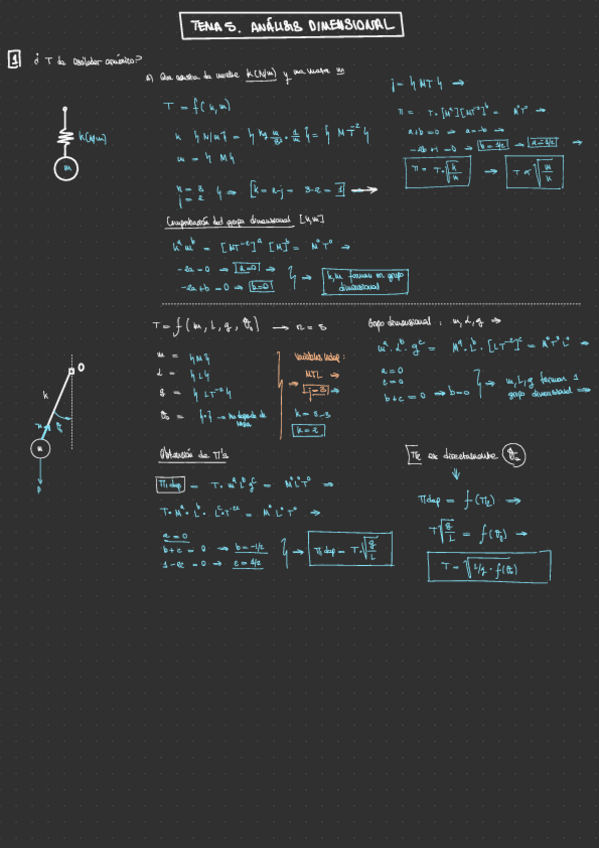 TEMA 5. ANÁLISIS DIMENSIONAL
1 ¿T de oscilador armónico?
a) Con muelle de k(N/m) y una masa m
k(N/m)
m
T = f(k, m)
k {N/m} = {kg · m/s² · 1/m} = {MT⁻²}
m = {M}
n = 3
j = 2
→ [k = n-j = 3-2 = 1] →
Comprobación del grupo dimensional [k,m]
kᵃ mᵇ = [MT⁻²]ᵃ [M]ᵇ = M⁰T⁰ →
-2a = 0 → a=0 →
-2a+b = 0 → b=0
k, m forman un grupo dimensional
j = {MT} →
Π = T·[Mᵃ][MT⁻²]ᵇ = M⁰T⁰ →
a+b=0 → a=-b →
-2b+1=0 → b=1/2 → a=-1/2 →
Π = T·√(k/m) → T ∝ √(m/k)
T = f(m, L, g, θ₀) → n = 5
m = {M}
L = {L}
g = {LT⁻²}
θ₀ = {·} → no depende de nada
Variables indep:
→ MTL →
j = 3 →
k = 5-3
k = 2
Grupo dimensional: m, L, g →
mᵃ·Lᵇ·gᶜ = Mᵃ·Lᵇ·[LT⁻²]ᶜ = M⁰T⁰L⁰ →
a = 0
c = 0
b+c = 0 → b=0
→ m, L, g forman 1 grupo dimensional →
O
θ₀
m
P
Obtención de Π's
Π₁dep = T·mᵃLᵇgᶜ = M⁰L⁰T⁰ →
T·Mᵃ·Lᵇ·LᶜT⁻²ᶜ = M⁰L⁰T⁰ →
a = 0
b+c = 0 → b = -1/2
1-2c = 0 → c = 1/2
→ Π₁dep = T·√(g/L)
Π₂ es directamente θ₀
Π₁dep = f(Π₂) →
T√(g/L) = f(θ₀) →
T = √(L/g · f(θ₀))